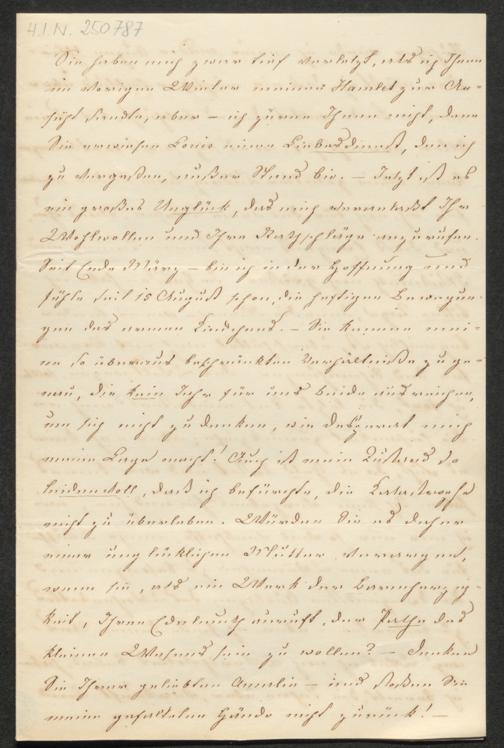 H.I.N. 250787
Sie haben mich zwar tief verletzt, als ich Ihnen
im vorigen Winter meinen Hamlet zur An-
sicht sandte, aber – ich zürne Ihnen nicht, denn
Sie erwiesen Louis einen Liebesdienst, den ich
zu vergeßen, außer Stand bin. – Jetzt ist es
ein großes Unglück, das mich veranlaßt Ihr
Wohlwollen und Ihre Rathschläge anzurufen.
Seit Ende März – bin ich in der Hoffnung und
fühle seit 15 August schon, die heftigen Bewegun-
gen des armen Kindchens. – Sie kennen mei-
ne so überaus beschränkten Verhältniße zu ge-
nau, die kein Jahr für uns beide ausreichen,
um sich nicht zu denken, wie desperat mich
meine Lage macht! Auch ist mein Zustand so
leidenvoll, daß ich befürchte, die Katastrophe
nicht zu überleben. Würden Sie es daher
einer unglücklichen Mutter verargen,
wenn sie, als ein Werk der Barmherzig-
keit, Ihren Edelmuth anruft, der Pathe des
kleinen Wesens sein zu wollen? – Denken
Sie Ihrer geliebten Amalie – und stoßen Sie
meine gefalteten Hände nicht zurück! –